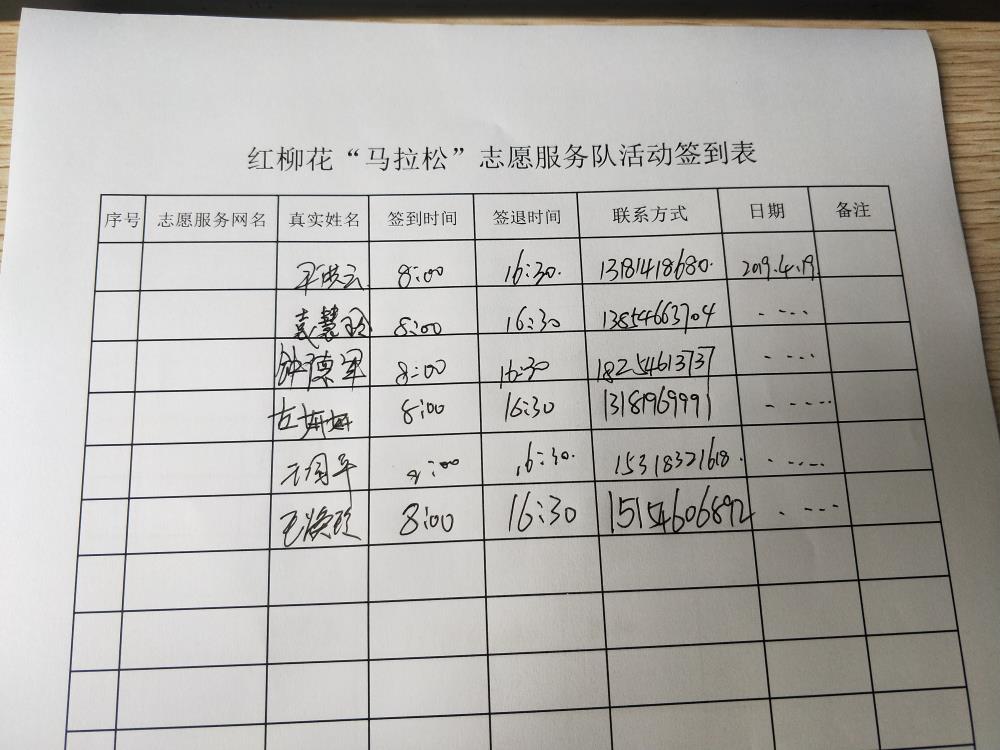 红柳花“马拉松”志愿服务队活动签到表
序号 志愿服务网名 真实姓名 签到时间 签退时间 联系方式 日期 备注
8:00 16:30. 13181418680. 2019.4.19
袁慧玲 8:00 16:30 13854663704 - - - -
钟德军 8:00 16:30 18254613737 - - - -
8:00 16:30 13181969991 - - - - -
8:00 16:30. 15318321618. - - - - -
8:00 16:30 15154606892 - - - -